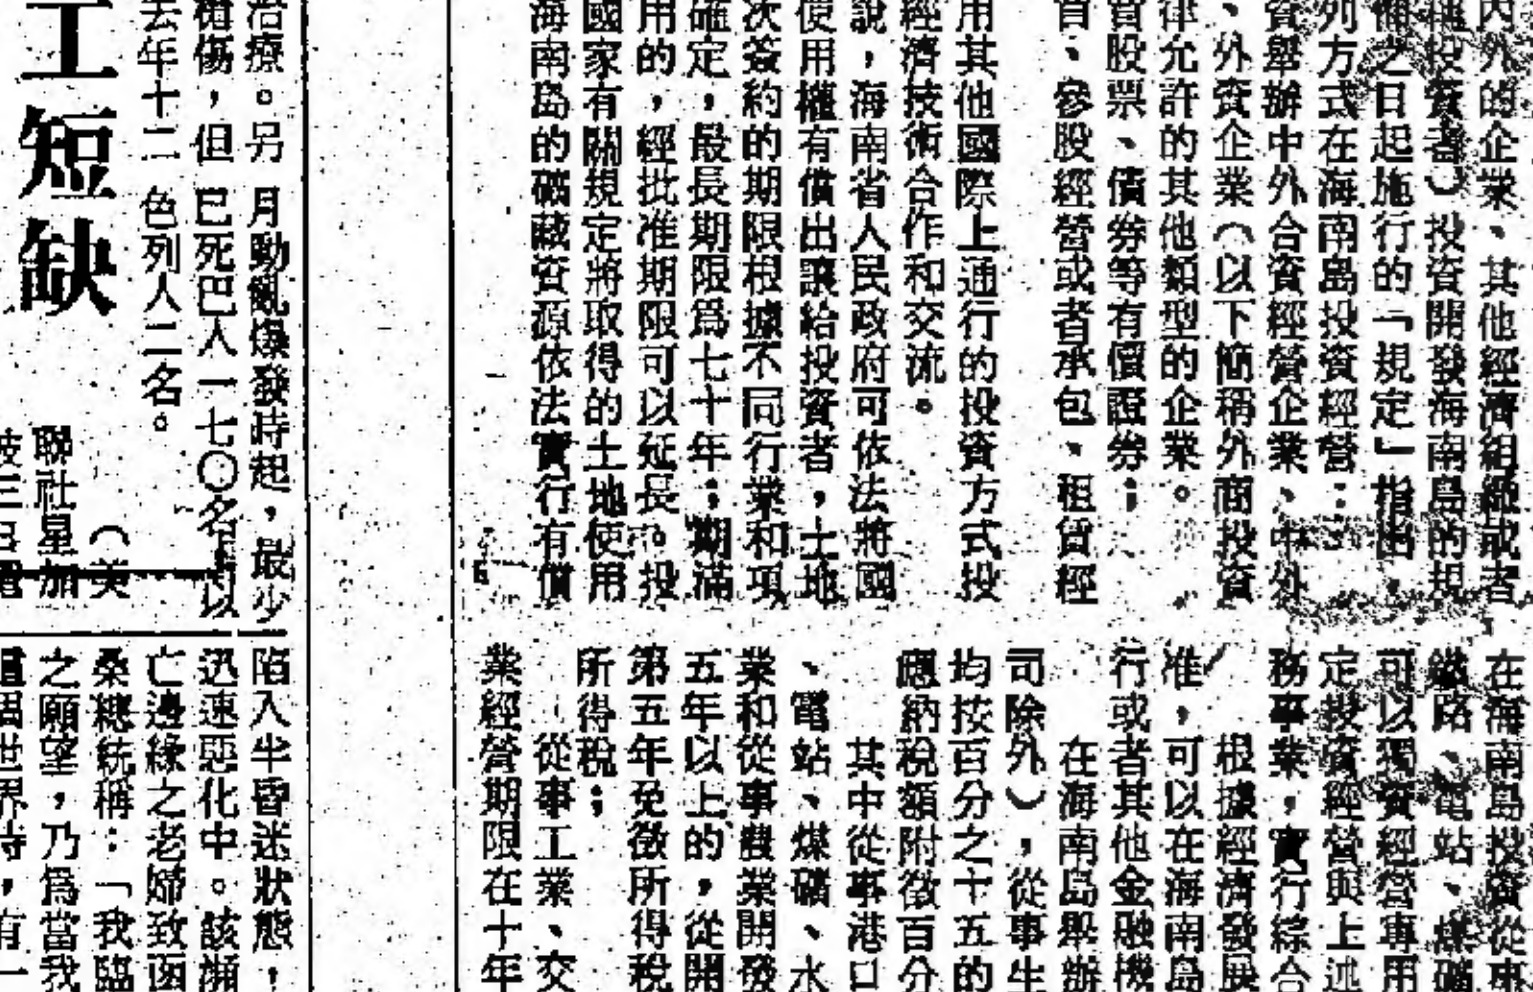 內外的企業、其他經濟組織或者
投資者）投資開發海南島的規
之日起施行的「規定」指出，
列方式在海南島投資經營：
資舉辦中外合資經營企業、中外
、外資企業（以下簡稱外商投資
律允許的其他類型的企業。
買股票、債券等有價證券；
首、參股經營或者承包、租賃經
用其他國際上通行的投資方式投
經濟技術合作和交流。
說，海南省人民政府可依法將國
使用權有償出讓給投資者，土地
次簽約的期限根據不同行業和項
確定，最長期限爲七十年；期滿
用的，經批准期限可以延長。投
國家有關規定將取得的土地使用
海南島的礦藏資源依法實行有償
在海南島投資從事
鐵路、電站、煤礦
可以獨資經營專用
定投資經營與上述
務事業，實行綜合
根據經濟發展
准，可以在海南島
行或者其他金融機
在海南島舉辦
司除外），從事生
均按百分之十五的
應納稅額附徵百分
其中從事港口
、電站、煤礦、水
業和從事農業開發
五年以上的，從開
第五年免徵所得稅
所得稅；
從事工業、交
業經營期限在十年
治療。另
槍傷，但
去年十二
月動亂爆發時起，最少
已死巴人一七〇名，以
色列人二名。
工短缺
（美
聯社星加
坡三日電
陷入半昏迷狀態，
迅速惡化中。該瀕
亡邊緣之老婦致函
桑總統稱：「我臨
之願望，乃爲當我
個世界時，有一